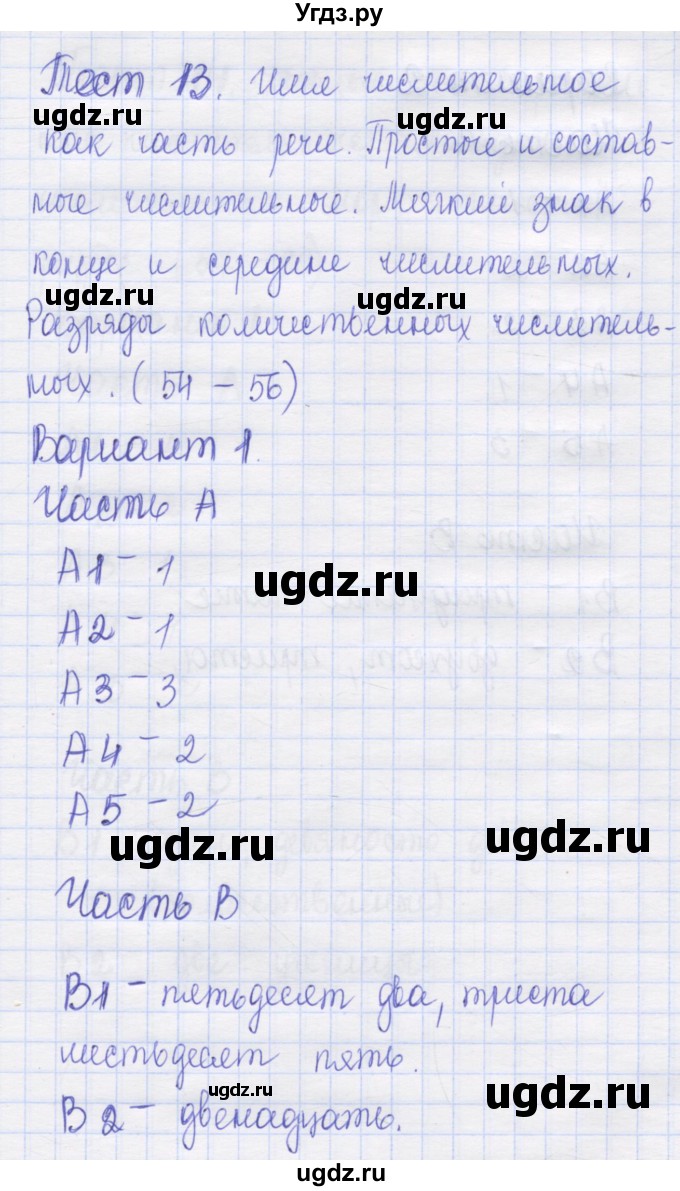 Угдз.ру
Тест 13. Имя числительное
ugdz.ru
ugdz.ru
как часть речи. Простые и состав-
ные числительные. Мягкий знак в
конце и середине числительных.
ugdz.ru
ugdz.ru
Разряды количественных числитель-
ных. (54 - 56).
Вариант 1.
Часть А
А1 - 1
ugdz.ru
А2 - 1
А3 - 3
А4 - 2
А5 - 2
ugdz.ru
ugdz.ru
Часть В
В1 - пятьдесят два, триста
шестьдесят пять.
ugdz.ru
ugdz.ru
В2 - двенадцать.
ugdz.ru
ugdz.ru